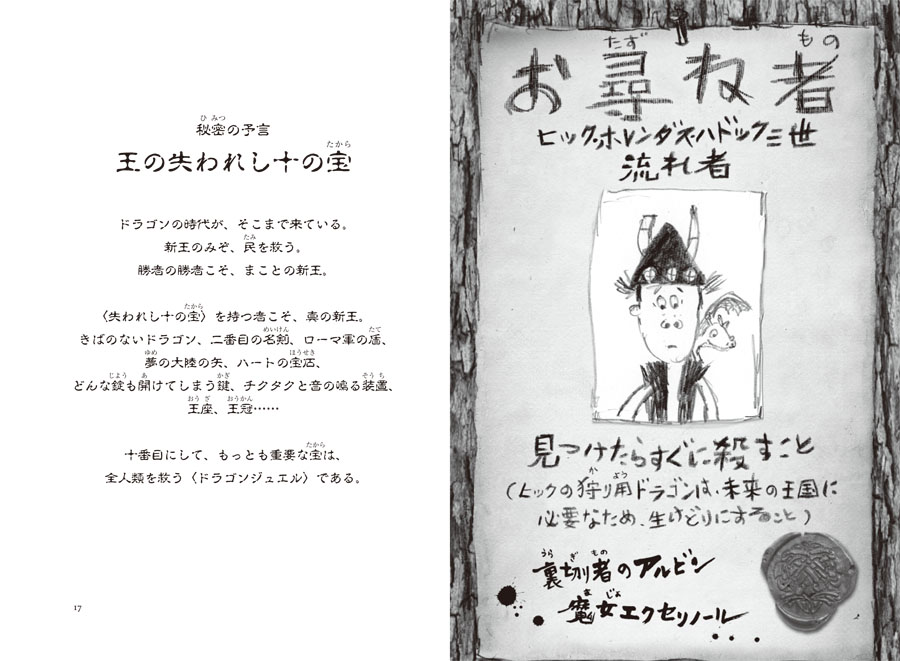 秘密の予言
王の失われし十の宝
ドラゴンの時代が、そこまで来ている。
新王のみぞ、民を救う。
勝者の勝者こそ、まことの新王。
〈失われし十の宝〉を持つ者こそ、真の新王。
きばのないドラゴン、二番目の名剣、ローマ軍の盾、
夢の大陸の矢、ハートの宝石、
どんな錠も開けてしまう鍵、チクタクと音の鳴る装置、
王座、王冠……
十番目にして、もっとも重要な宝は、
全人類を救う〈ドラゴンジュエル〉である。
17
お尋ね者
ヒック・ホレンダス・ハドック三世
流れ者
見つけたらすぐに殺すこと
(ヒックの狩り用ドラゴンは、未来の王国に
必要なため、生けどりにすること)
裏切り者のアルビン
魔女エクセリノール